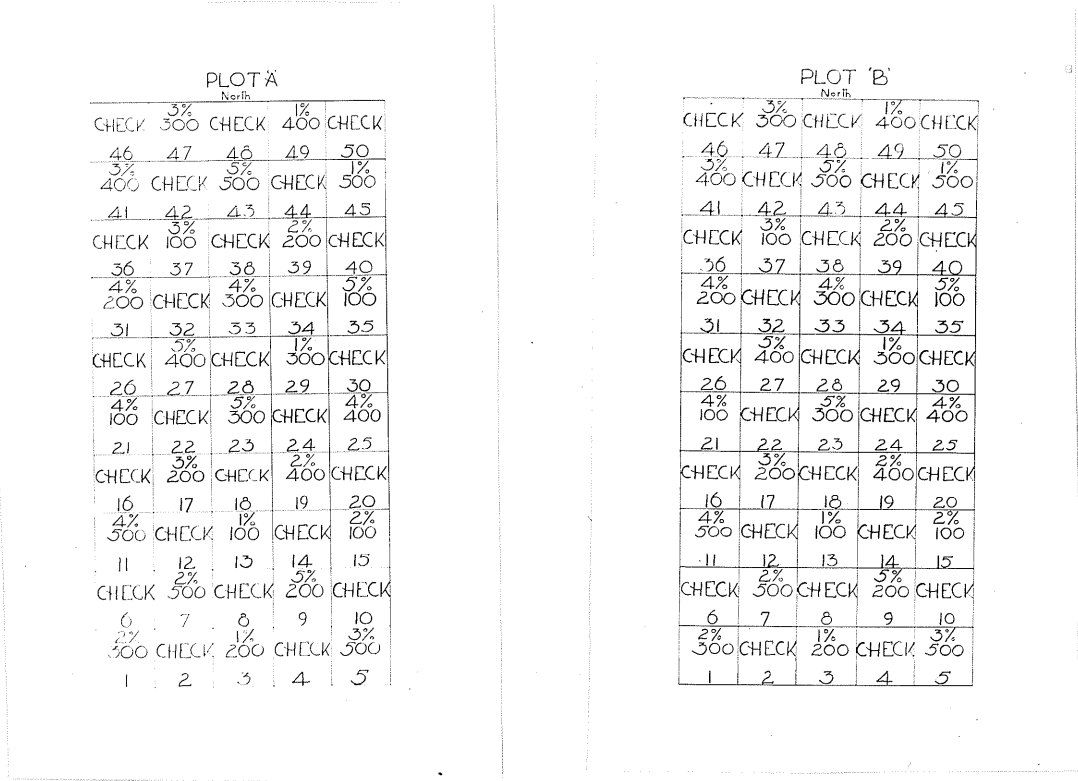 PLOT 'A'
North
CHECK 3% 300 CHECK 1% 400 CHECK
46 47 48 49 50
3% 400 CHECK 5% 500 CHECK 1% 500
41 42 43 44 45
CHECK 3% 100 CHECK 2% 200 CHECK
36 37 38 39 40
4% 200 CHECK 4% 300 CHECK 5% 100
31 32 33 34 35
CHECK 5% 400 CHECK 1% 300 CHECK
26 27 28 29 30
4% 100 CHECK 5% 300 CHECK 4% 400
21 22 23 24 25
CHECK 3% 200 CHECK 2% 400 CHECK
16 17 18 19 20
4% 500 CHECK 1% 100 CHECK 2% 100
11 12 13 14 15
CHECK 2% 500 CHECK 5% 200 CHECK
6 7 8 9 10
2% 300 CHECK 1% 200 CHECK 3% 500
1 2 3 4 5
PLOT 'B'
North
CHECK 3% 300 CHECK 1% 400 CHECK
46 47 48 49 50
3% 400 CHECK 5% 500 CHECK 1% 500
41 42 43 44 45
CHECK 3% 100 CHECK 2% 200 CHECK
36 37 38 39 40
4% 200 CHECK 4% 300 CHECK 5% 100
31 32 33 34 35
CHECK 5% 400 CHECK 1% 300 CHECK
26 27 28 29 30
4% 100 CHECK 5% 300 CHECK 4% 400
21 22 23 24 25
CHECK 3% 200 CHECK 2% 400 CHECK
16 17 18 19 20
4% 500 CHECK 1% 100 CHECK 2% 100
11 12 13 14 15
CHECK 2% 500 CHECK 5% 200 CHECK
6 7 8 9 10
2% 300 CHECK 1% 200 CHECK 3% 500
1 2 3 4 5